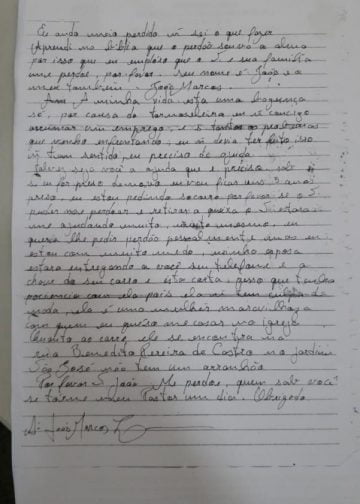 Eu ando meio perdido ñ sei o que fazer
Aprendi na bíblia que o perdão salva a alma
por isso que eu emploro que o S e sua familia
me perdoe, por favor. Seu nome é João e o
meu também. João Marcos.
A minha vida esta uma bagunça
só, por causa da tornoseleira eu ñ consigo
arrumar um emprego, e tantos os problemas
que venho enfrentando, eu ñ devia ter feito isso
ñ tem sentido, eu preciso de ajuda
talvez seja você a ajuda que eu preciso, sabe
se eu for preso denovo vou ficar uns 3 anos
preso, eu estou pedindo socorro por favor se o S.
puder nos perdoar e retirar a queixa o S. estara
me ajudando muito, muito mesmo, eu
queria lhe pedir perdão pessoalmente mas eu
estou com muito medo, minha esposa
estara entregando a você seu telefone e a
chave do seu carro e esta carta, peço que tenha
paciencia com ela pois ela ñ tem culpa de
nada, ela é uma mulher maravilhosa
com quem eu quero me casar na igreja
Quanto ao carro, ele se encontra na
rua Benedito Pereira de Castro no jardim
São José não tem um arranhão
Por favor S. João Me perdoe, quem sabe você
se torne meu Pastor um dia. Obrigado.
Ass: João Marcos